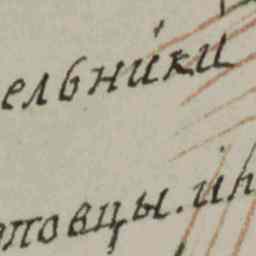 ельники
повцы. ин